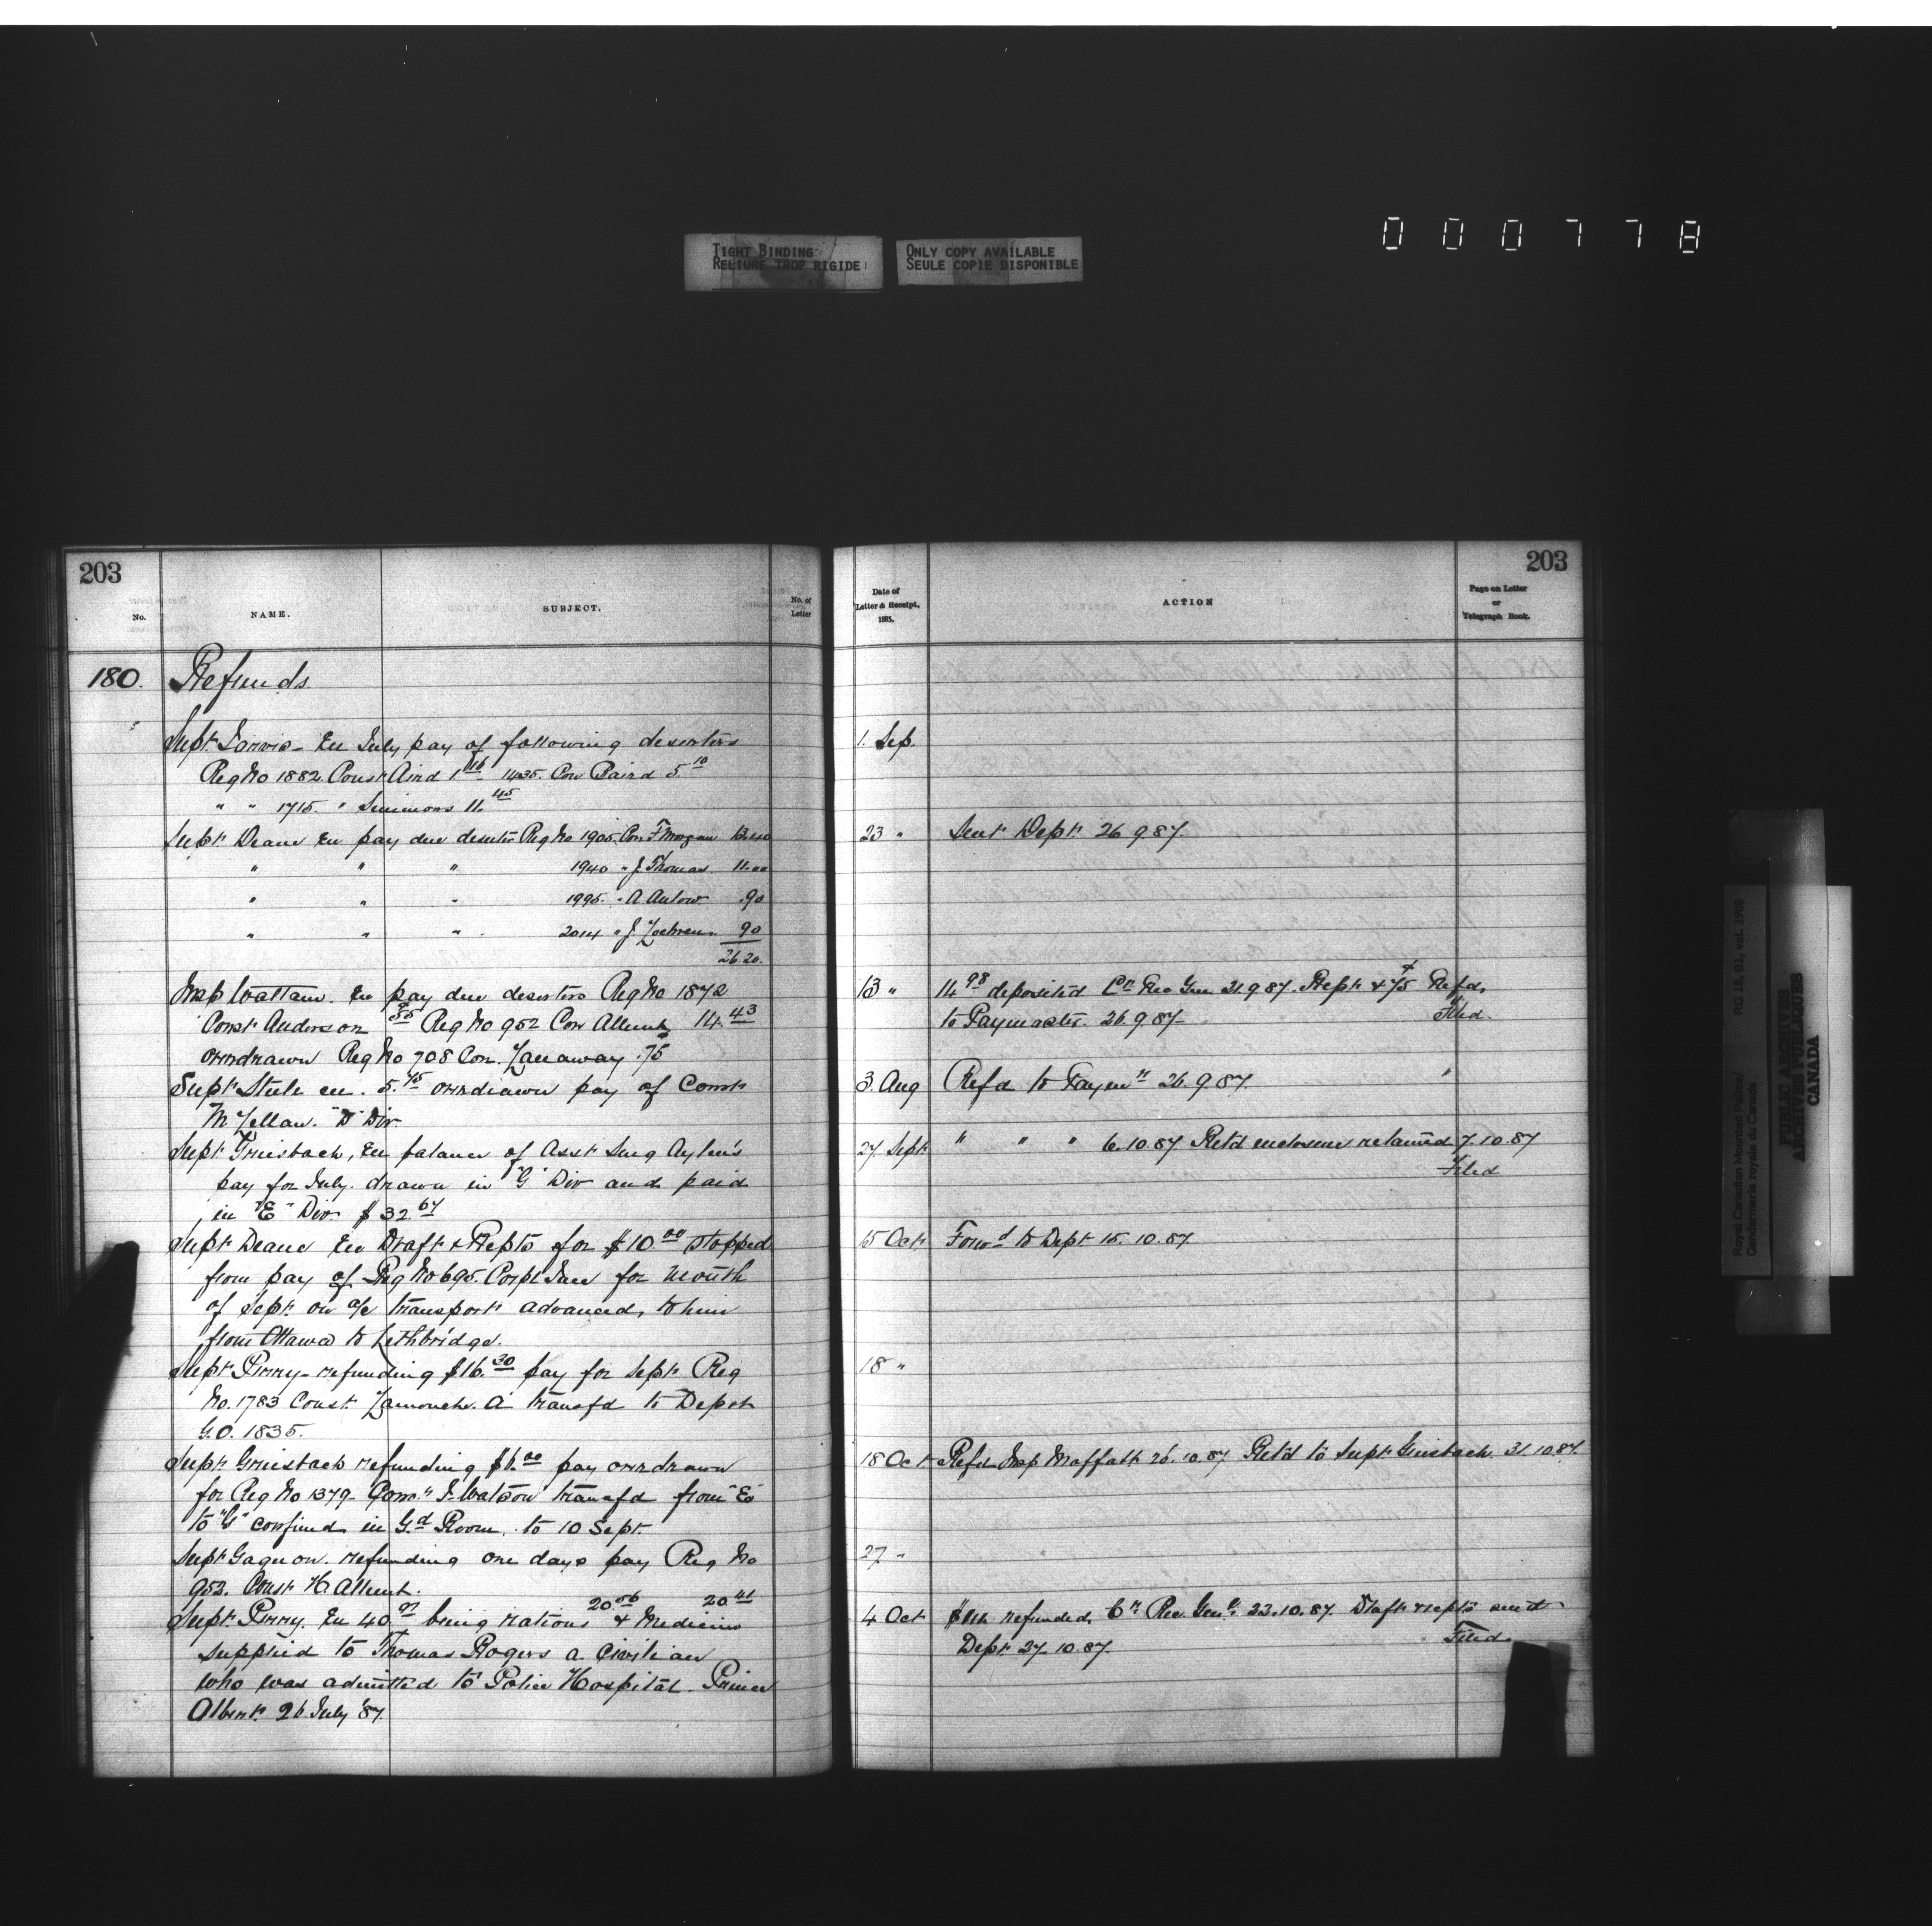 000778
TIGHT BINDING
RELIURE TROP RIGIDE
ONLY COPY AVAILABLE
SEULE COPIE DISPONIBLE
203
No.
NAME.
SUBJECT.
No. of
Letter
180. Refunds.
Supt Jarvis - En July pay of following deserters
Reg No 1882 Const Aird 1.16 1435. Con Baird 5.10
" " 1715. " Simmons 11.45
Supt Deane En pay due deserter Reg No 1905 Con F Morgan 13.40
" " " 1940 " J. Thomas 11.00
" " " 1995 " A 90
" " " 2014 " J. 90
26.20.
Insp Wattam. En pay due deserters Reg No 1872
Const Anderson .55 Reg No 952 Con 14.43
overdrawn Reg No 708 Con. Lanaway .75
Supt Steele en. 5.45 overdrawn pay of Const
McLellan. "D" Div.
Supt Griesbach, En balance of Asst Surg Aylen's
pay for July. drawn in "G" Div and paid
in "E" Div. $32.67
Supt Deane En Draft & Repts for $10.00 stopped
from pay of Reg No 695. Corpl for month
of Sept on a/c transport advanced, to him
from Ottawa to Lethbridge.
Supt Perry - refunding $16.30 pay for Sept Reg
No. 1783 Const Lamouche. A transfd to Depot
G.O. 1835.
Supt Griesbach refunding $6.00 pay overdrawn
for Reg No 1379 - Const J. Watson transfd from "E"
to "G" confined in Gd Room, to 10 Sept.
Supt Gagnon. refunding one days pay Reg No
952. Const H.
Supt Perry. En 40.97 being rations 20.56 & Medicine 20.41
supplied to Thomas Rogers a civilian
who was admitted to Police Hospital. Prince
Albert. 26 July '87.
203
Date of
Letter & Receipt,
1885.
ACTION
Page on Letter
or
Telegraph Book.
1. Sep.
23 " Sent Dept. 26 9 87.
13 " 14.98 deposited Cr Rec Gen 21.9.87. Rept & .75 Refd.
to Paymaster. 26.9.87 Filed.
3. Aug Refd to Paymr 26.9.87. "
27 Sept " " " 6.10.87. Retd enclosure retained 7.10.87
Filed
15 Oct Forwd to Dept 15.10.87.
18 "
18 Oct Refd Insp Moffatt 26.10.87 Retd to Supt Griesbach. 31.10.87.
27 "
4 Oct refunded, Cr Rec. Genl. 22.10.87. Draft & repts sent
Dept 27.10.87. Filed.
Royal Canadian Mounted Police/
Gendarmerie royale du Canada
RG 18, B1, vol. 1988
PUBLIC ARCHIVES
ARCHIVES PUBLIQUES
CANADA